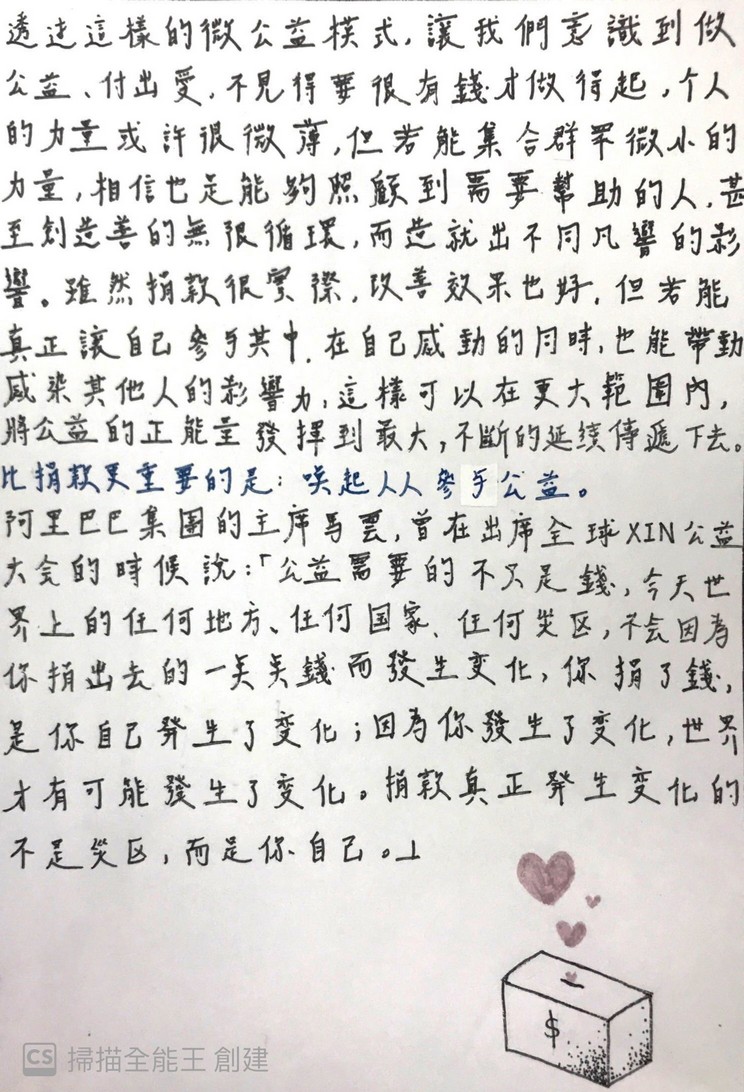 透过這樣的微公益模式，讓我們意識到做
公益、付出愛，不見得要很有錢才做得起，个人
的力量或許很微薄，但若能集合群眾微小的
力量，相信也足能夠照顧到需要幫助的人，甚
至創造善的無限循環，而造就出不同凡響的影
響。雖然捐款很實際，改善效果也好，但若能
真正讓自己參与其中，在自己感動的同時，也能帶動
感染其他人的影響力，這樣可以在更大範圍內，
將公益的正能量發揮到最大，不斷的延續傳遞下去。
比捐款更重要的是：喚起人人參与公益。
阿里巴巴集團的主席馬雲，曾在出席全球XIN公益
大会的時候說：「公益需要的不只是錢，今天世
界上的任何地方、任何国家、任何災区，不会因為
你捐出去的一美美錢而發生变化，你捐了錢，
是你自己發生了变化；因為你發生了变化，世界
才有可能發生了变化。捐款真正發生变化的
不是災区，而是你自己。」
$
CS 掃描全能王 創建